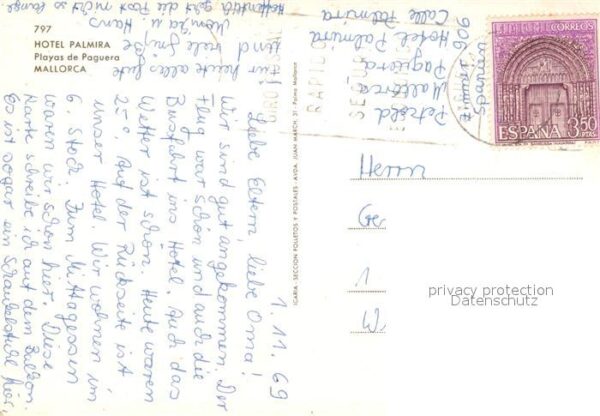 797
HOTEL PALMIRA
Playas de Paguera
MALLORCA
1.11.69
Liebe Eltern, liebe Oma!
Wir sind gut angekommen. Der
Flug war schön und auch die
Busfahrt ins Hotel. Auch das
Wetter ist schön. Heute waren
25°. Auf der Rückseite ist
unser Hotel. Wir wohnen im
6. Stock. Zum Mittagessen
waren wir schon hier. Diese
Karte schreibe ich auf dem Balkon.
Es ist sogar ein Schaukelstuhl hier.
Für heute alles Gute
und viele Grüße
u. Hans
Hoffentlich geht die Post nicht so lange
ICARIA. SECCION FOLLETOS Y POSTALES - AVDA. JUAN MARCH, 31 - Palma Mallorca
Petzold
Hotel Palmira
Paguera
Mallorca
Calle Palmira
Zimmer 906
Spanien
RAPID
SEÑ
CORREOS
ESPAÑA 3,50
PTAS
Herrn
Ge
1
W
privacy protection
Datenschutz